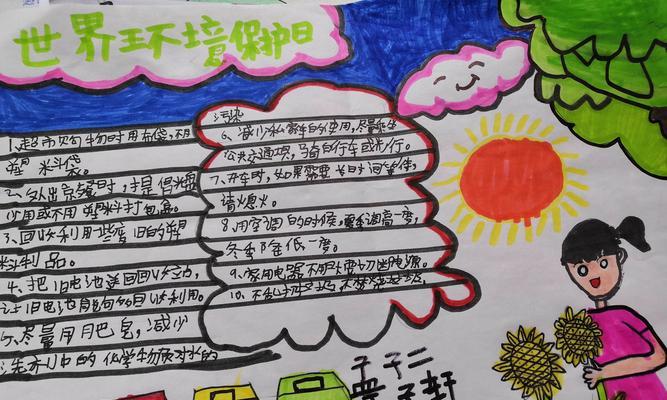 世界环境保护日
1、超市购物时用布袋,不用
塑料袋。
2、外出京餐时,提倡光盘
少用或不用塑料打包盒。
3、回收利用一些变旧的塑
料制品。
4、把旧电池送回回收站点,
让旧电池
利用。
5、尽量用肥皂,减少
洗衣
中的化学物质对水的
污染
6、减少私家车的使用,尽量坐
公共交通工具,骑自行车或步行。
7、开车时,如果需要长时间等待,
请熄火。
8、用空调的时候,夏季调高一度,
冬季降低一度。
9、家用电器不用时要切断电源。
10、不乱扔垃圾,